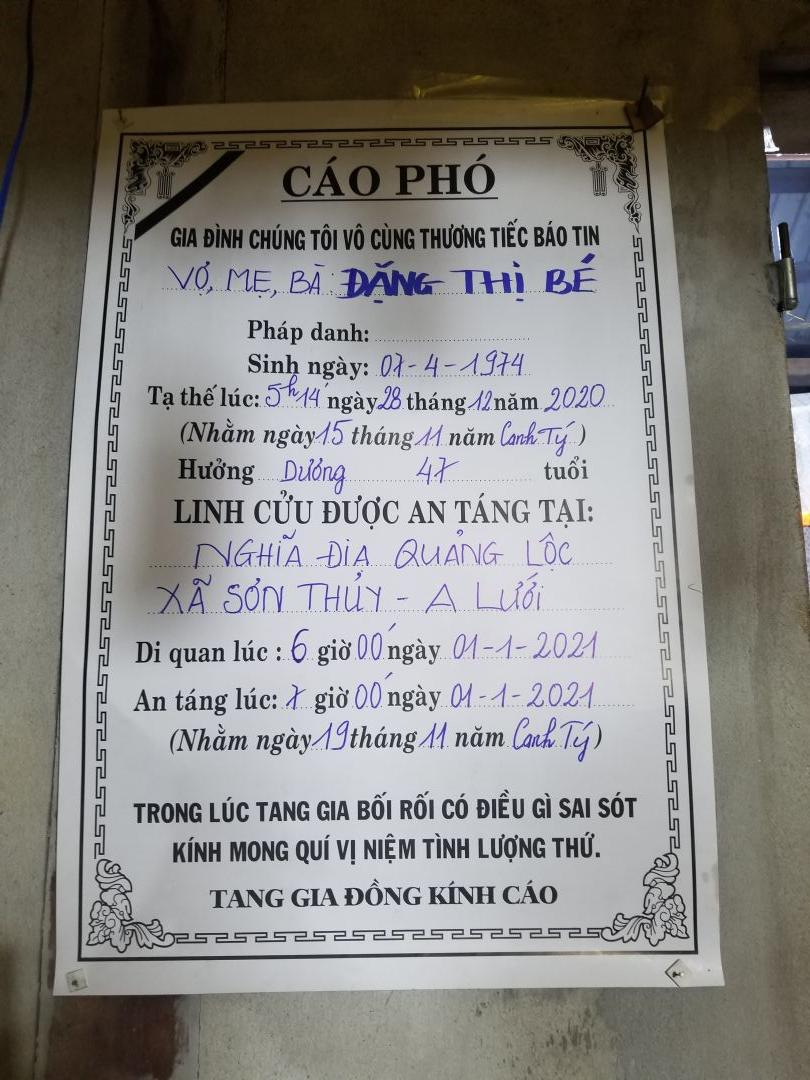 CÁO PHÓ
GIA ĐÌNH CHÚNG TÔI VÔ CÙNG THƯƠNG TIẾC BÁO TIN
VỢ, MẸ, BÀ: ĐẶNG THỊ BÉ
Pháp danh:
Sinh ngày: 07-4-1974
Tạ thế lúc: 5h14' ngày 28 tháng 12 năm 2020
(Nhằm ngày 15 tháng 11 năm Canh Tý)
Hưởng Dương 47 tuổi
LINH CỬU ĐƯỢC AN TÁNG TẠI:
NGHĨA ĐỊA QUẢNG LỘC
XÃ SƠN THỦY - A LƯỚI
Di quan lúc : 6 giờ 00' ngày 01-1-2021
An táng lúc: 7 giờ 00' ngày 01-1-2021
(Nhằm ngày 19 tháng 11 năm Canh Tý)
TRONG LÚC TANG GIA BỐI RỐI CÓ ĐIỀU GÌ SAI SÓT
KÍNH MONG QUÍ VỊ NIỆM TÌNH LƯỢNG THỨ.
TANG GIA ĐỒNG KÍNH CÁO